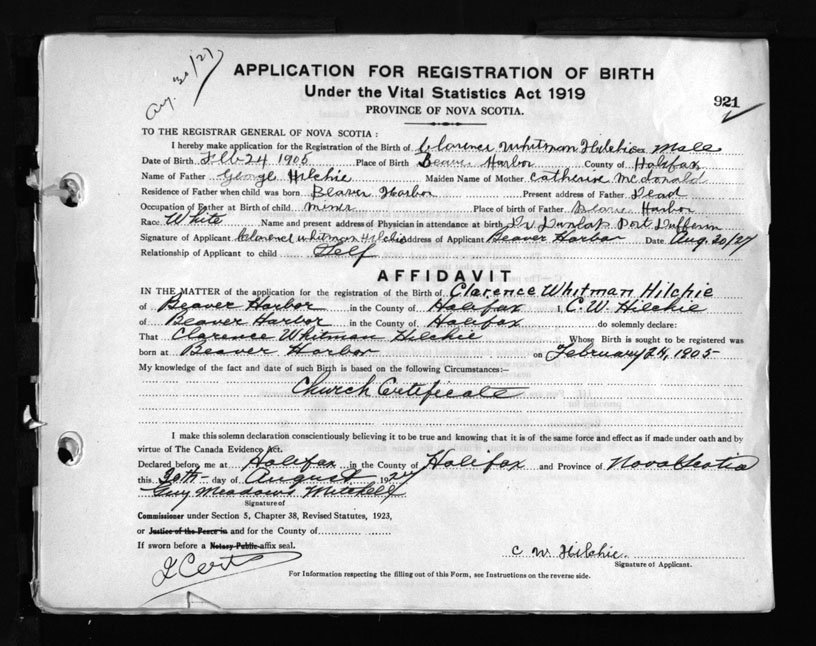 Aug. 30/27
APPLICATION FOR REGISTRATION OF BIRTH
Under the Vital Statistics Act 1919
921
PROVINCE OF NOVA SCOTIA.
TO THE REGISTRAR GENERAL OF NOVA SCOTIA:
I hereby make application for the Registration of the Birth of Clarence Whitman Hilchie Sex Male
Date of Birth Feb 24 1905 Place of Birth Beaver Harbor County of Halifax
Name of Father George Hilchie Maiden Name of Mother Catherine McDonald
Residence of Father when child was born Beaver Harbor Present address of Father Dead
Occupation of Father at Birth of child miner Place of birth of Father Beaver Harbor
Race White Name and present address of Physician in attendance at birth Dr Dunlap Port Dufferin
Signature of Applicant Clarence Whitman Hilchie Address of Applicant Beaver Harbor Date Aug. 20/27
Relationship of Applicant to child Self
AFFIDAVIT
IN THE MATTER of the application for the registration of the Birth of Clarence Whitman Hilchie
of Beaver Harbor in the County of Halifax I, C. W. Hilchie
of Beaver Harbor in the County of Halifax do solemnly declare:
That Clarence Whitman Hilchie Whose Birth is sought to be registered was
born at Beaver Harbor on February 24, 1905
My knowledge of the fact and date of such Birth is based on the following Circumstances:—
Church Certificate
I make this solemn declaration conscientiously believing it to be true and knowing that it is of the same force and effect as if made under oath and by
virtue of The Canada Evidence Act.
Declared before me at Halifax in the County of Halifax and Province of Nova Scotia
this 20th day of August 1927
Guy Meadows Mitchell
Signature of
Commissioner under Section 5, Chapter 38, Revised Statutes, 1923,
or Justice of the Peace in and for the County of
If sworn before a Notary Public affix seal.
C W Hilchie.
Signature of Applicant.
For Information respecting the filling out of this Form, see Instructions on the reverse side.